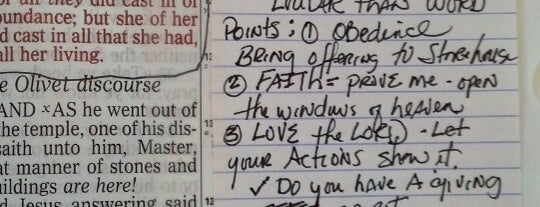 all they did cast in of
oundance; but she of her
d cast in all that she had,
all her living.
e Olivet discourse
AND ˣAS he went out of
the temple, one of his dis-
saith unto him, Master,
at manner of stones and
uildings are here!
d Jesus answering said
THAN WORD
POINTS: ① Obedince
BRING offering to Storehouse
② FAITH = PROVE me - open
the windows of heaven
③ LOVE the LORD - Let
your Actions show it.
✓ Do you HAVE A giving